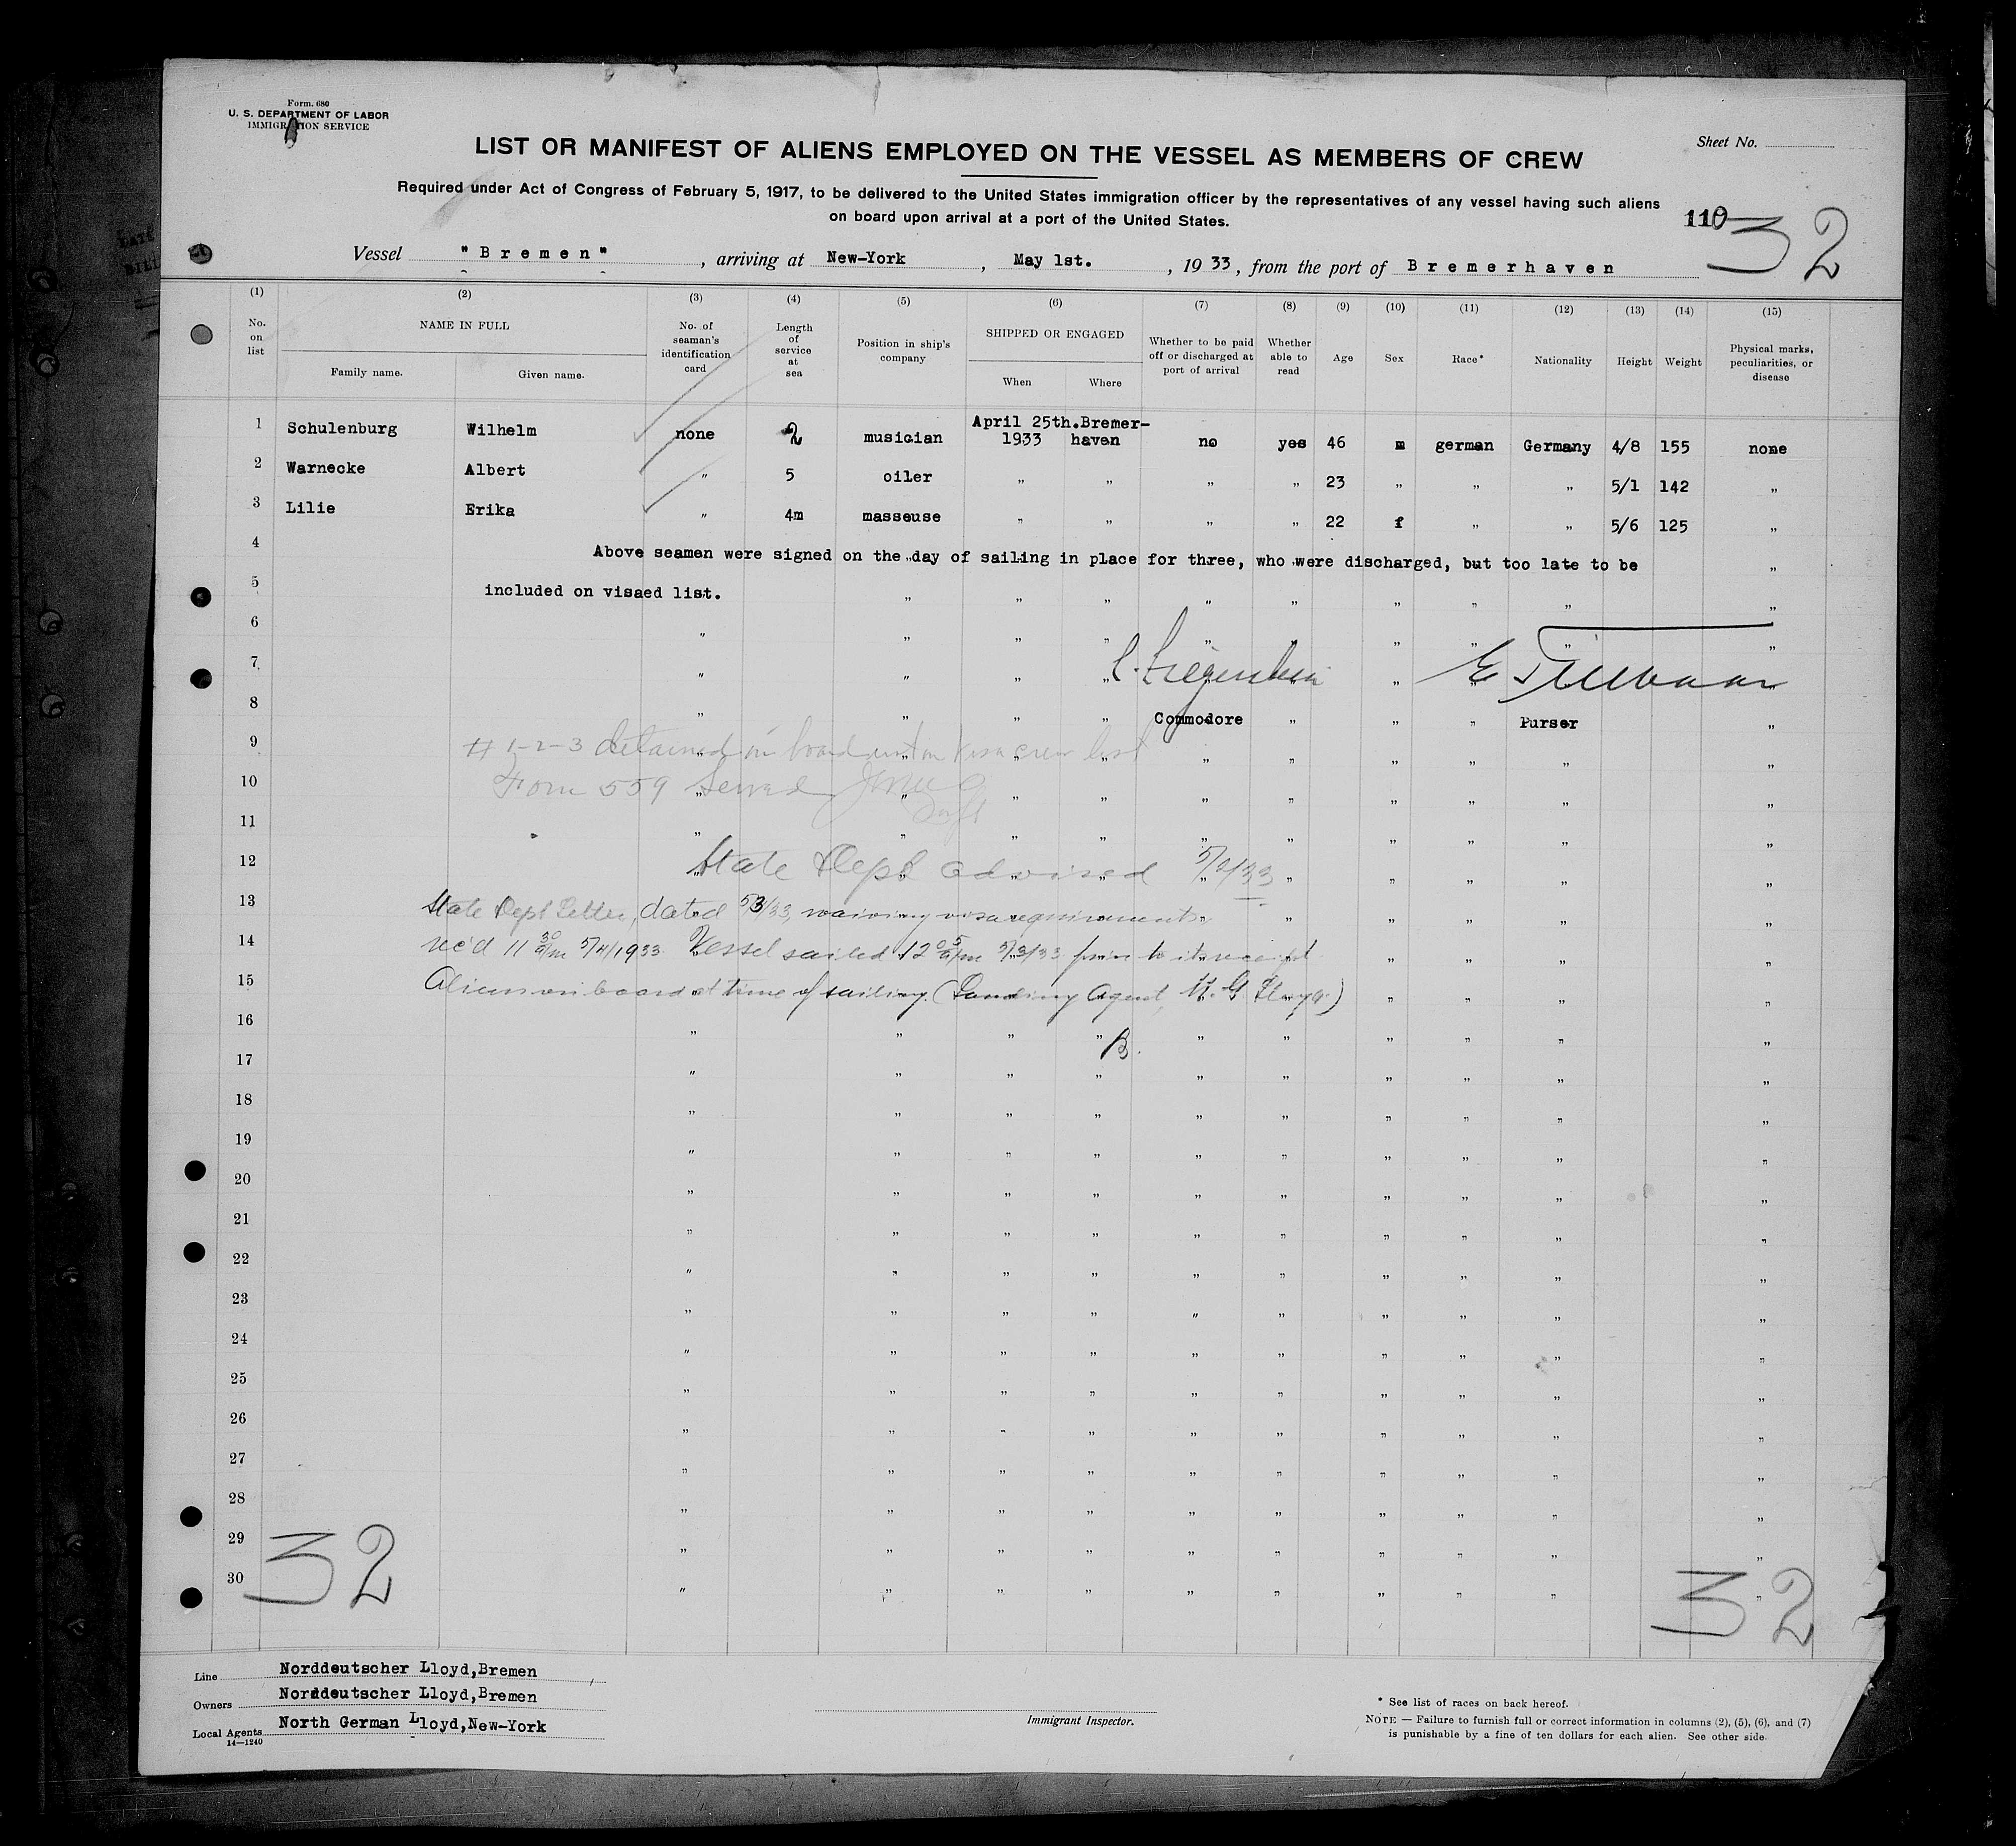 Form. 680
U. S. DEPARTMENT OF LABOR
IMMIGRATION SERVICE
LIST OR MANIFEST OF ALIENS EMPLOYED ON THE VESSEL AS MEMBERS OF CREW
Sheet No.
Required under Act of Congress of February 5, 1917, to be delivered to the United States immigration officer by the representatives of any vessel having such aliens
on board upon arrival at a port of the United States.
110 32
Vessel "Bremen", arriving at New-York, May 1st., 1933, from the port of Bremerhaven
(1) (2) (3) (4) (5) (6) (7) (8) (9) (10) (11) (12) (13) (14) (15)
No. on list NAME IN FULL Family name. Given name. No. of seaman's identification card Length of service at sea Position in ship's company SHIPPED OR ENGAGED When Where Whether to be paid off or discharged at port of arrival Whether able to read Age Sex Race* Nationality Height Weight Physical marks, peculiarities, or disease
1 Schulenburg Wilhelm none 2 musician April 25th. 1933 Bremer-haven no yes 46 m german Germany 4/8 155 none
2 Warnecke Albert " 5 oiler " " " " 23 " " " 5/1 142 "
3 Lilie Erika " 4m masseuse " " " " 22 f " " 5/6 125 "
4 Above seamen were signed on the day of sailing in place for three, who were discharged, but too late to be
5 included on visaed list.
6
7
8 Commodore Purser
9 # 1-2-3 detained on board crew list
10 Form 559 Served
11
12 State Dept advised 5/2/33
13 State Dept Letter, dated 5/3/33, waiving visa requirements
14 rec'd 11 30 am 5/4/1933 Vessel sailed 12 05 am 5/3/33 prior to its receipt
15 Aliens on board at time of sailing. (Landing Agent,
16
17
18
19
20
21
22
23
24
25
26
27
28
29
30
32 32
Line Norddeutscher Lloyd,Bremen
Owners Norddeutscher Lloyd,Bremen
Local Agents North German Lloyd,New-York
14—1240
Immigrant Inspector.
* See list of races on back hereof.
NOTE — Failure to furnish full or correct information in columns (2), (5), (6), and (7)
is punishable by a fine of ten dollars for each alien. See other side.